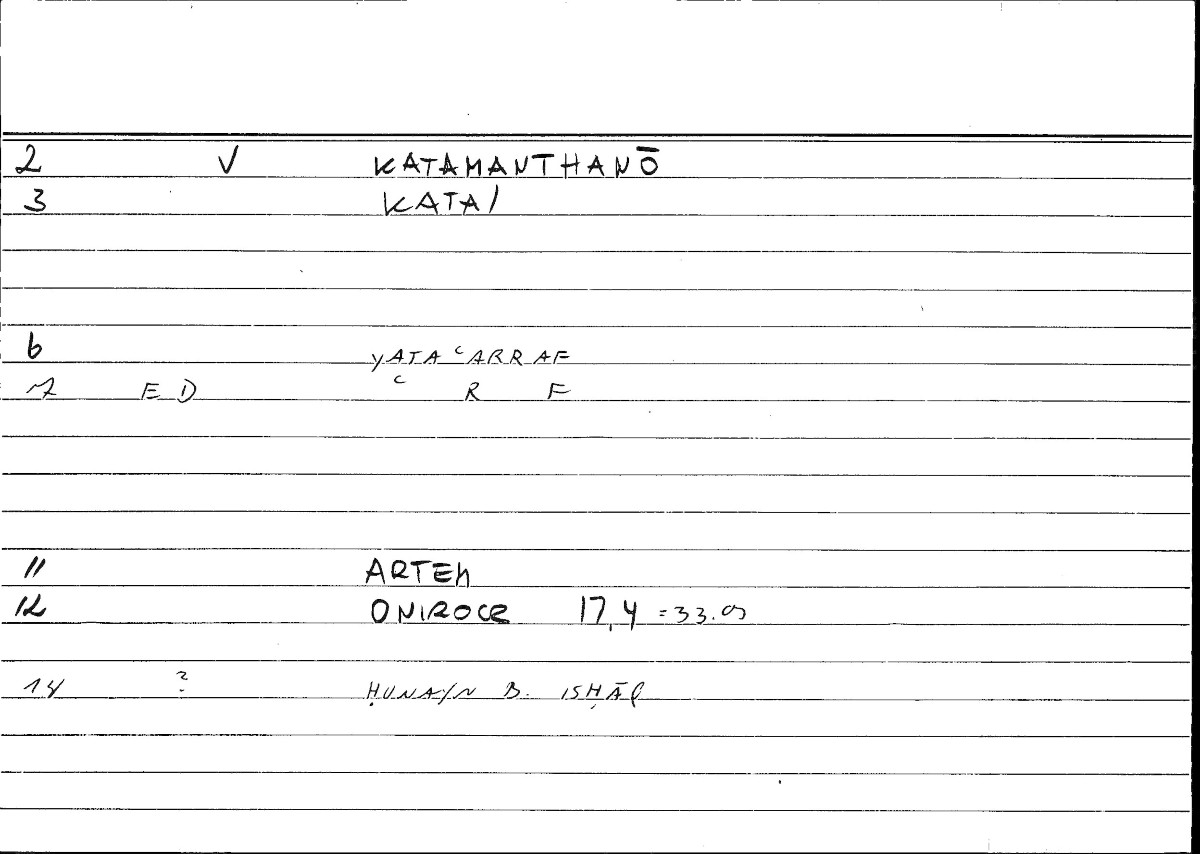 2 V KATAMANTHANŌ
3 KATA/
6 YATAʿARRAF
7 ED ʿ R F
11 ARTEM
12 ONIROCR 17,4 = 33.
14 ? ḤUNAYN B. ISḤĀQ